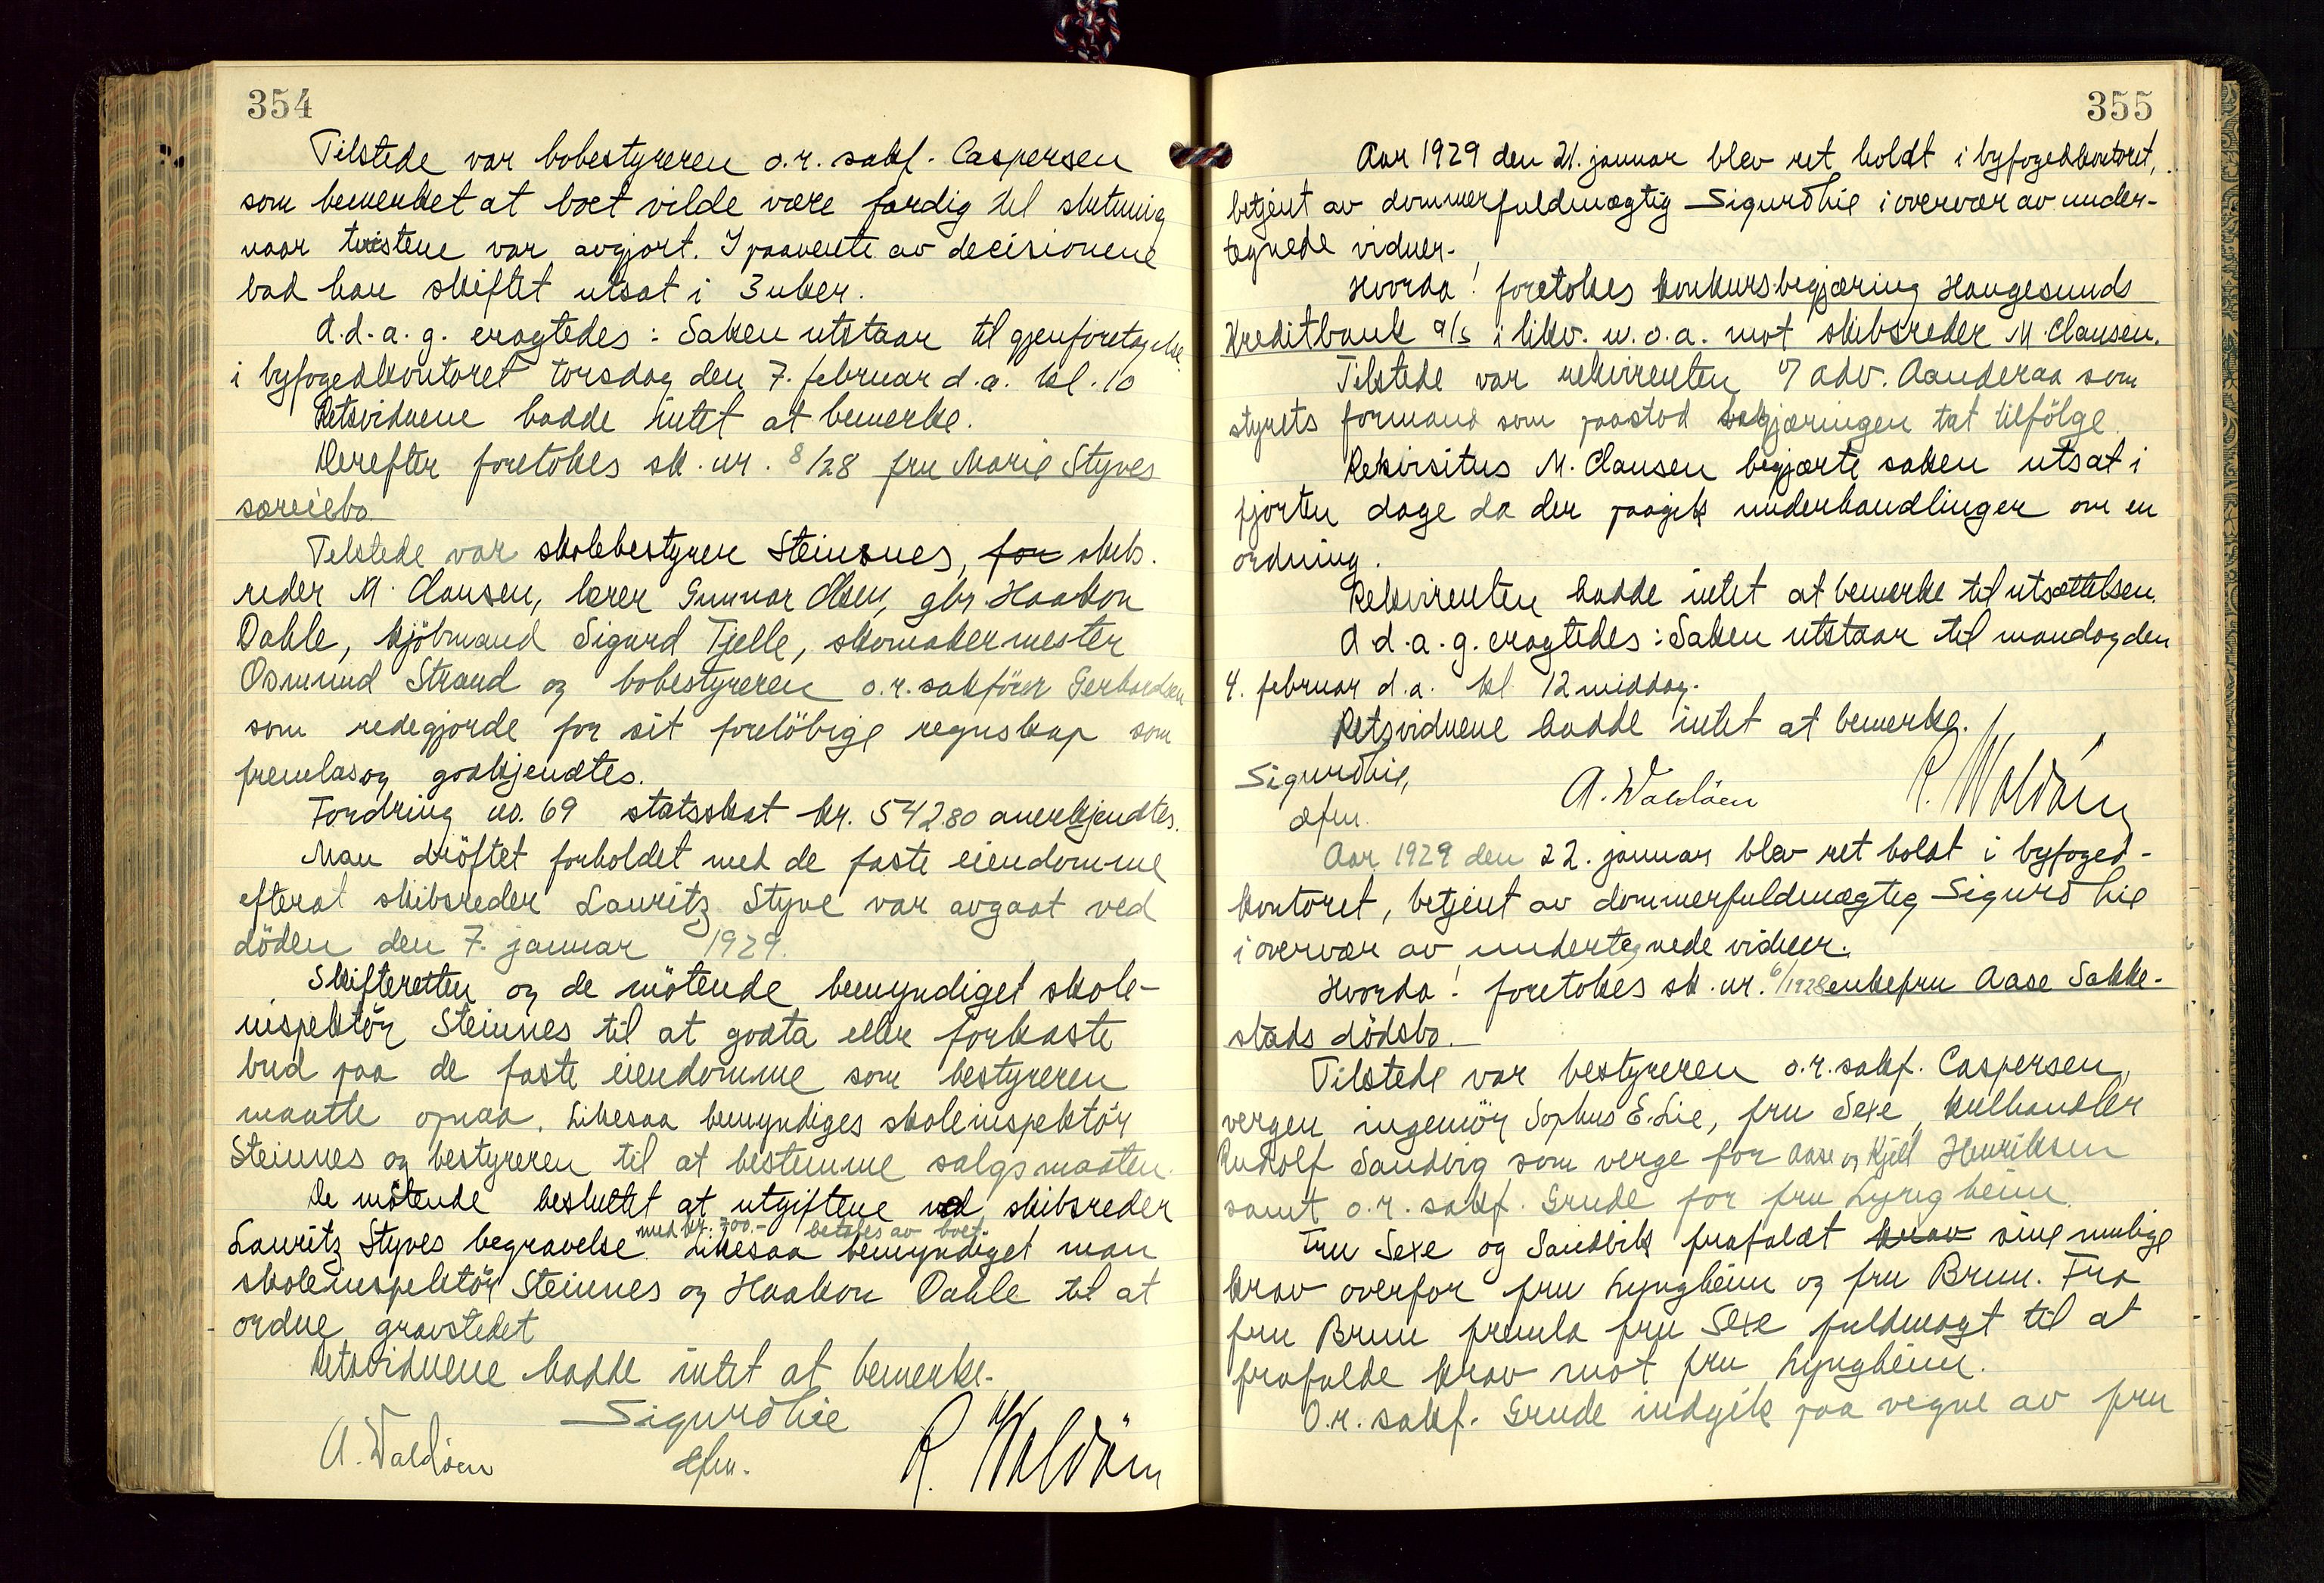 354
Tilstede var bobestyreren o.r. sakf. Caspersen
som bemerket at boet vilde være færdig til slutning
naar tvistene var avgjort. I paavente av decisionene
bad han skiftet utsat i 3 uker.
A.d.a.g. eragtedes: Saken utstaar til gjenforetagelse
i byfogedkontoret torsdag den 7. februar d.a. kl. 10
Retsvidnene hadde intet at bemerke.
Derefter foretokes sk. nr. 8/28 fru Marie Styves
særeiebo.
Tilstede var skolebestyrer Steinsnes, for skibs.
reder M. Clausen, lærer Gunnar Olsen, gbr Haakon
Dahle, kjöbmand Sigurd Tjelle, skomakermester
Osmund Strand og bobestyreren o.r. sakförer Gerhardsen
som redegjorde for sit forelöbige regnskap som
fremlas og godkjendtes.
Fordring no. 69 statsskat kr. 542.80 anerkjendtes.
Man dröftet forholdet med de faste eiendomme
efterat skibsreder Lauritz Styve var avgaat ved
döden den 7. januar 1929.
Skifteretten og de mötende bemyndiget skole-
inspektör Steinnes til at godta eller forkaste
bud paa de faste eiendomme som bestyreren
maatte opnaa. Likesaa bemyndiges skoleinspektör
Steinnes og bestyreren til at bestemme salgsmaaten.
De mötende besluttet at utgiftene ved skibsreder
med kr. 700.- betales av boet.
Lauritz Styves begravelse. Likesaa bemyndiget man
skoleinspektör Steinnes og Haakon Dahle til at
ordne gravstedet
Retsvidnene hadde intet at bemerke.
Sigurd Lie
A. Waldöen dfm. R. Waldöen
355
Aar 1929 den 21. januar blev ret holdt i byfogedkontoret,
betjent av dommerfuldmægtig Sigurd Lie i overvær av under-
tegnede vidner.
Hvorda! foretokes konkursbegjæring Haugesunds
Kreditbank a/s i likv. m.o.a. mot skibsreder M. Clausen.
Tilstede var rekvirenten v/ adv. Aanderaa som
styrets formand som paastod begjæringen tat tilfölge.
Rekvisitus M. Clausen begjærte saken utsat i
fjorten dage da der paagik underhandlinger om en
ordning.
Rekvirenten hadde intet at bemerke til utsættelsen.
A d.a.g. eragtedes: Saken utstaar til mandag den
4. februar d.a. kl 12 middag.
Retsvidnene hadde intet at bemerke.
Sigurd Lie, A. Waldöen R. Waldöen
dfm.
Aar 1929 den 22. januar blev ret holdt i byfoged-
kontoret, betjent av dommerfuldmægtig Sigurd Lie
i overvær av undertegnede vidner.
Hvorda! foretokes sk. nr. 6/1928 enkefru Aase Sakke-
stads dödsbo.
Tilstede var bestyreren o.r. sakf. Caspersen,
vergen ingeniör Sophus E. Lie, fru Sexe, kulhandler
Rudolf Sandvig som verge for Aase og Kjell Henriksen
samt o.r. sakf. Grude for fru Lyngheim.
Fru Sexe og Sandvik frafaldt krav sine mulige
krav overfor fru Lyngheim og fru Brun. Fra
fru Brun fremla fru Sexe fuldmagt til at
frafalde krav mot fru Lyngheim.
O.r. sakf. Grude indgik paa vegne av fru